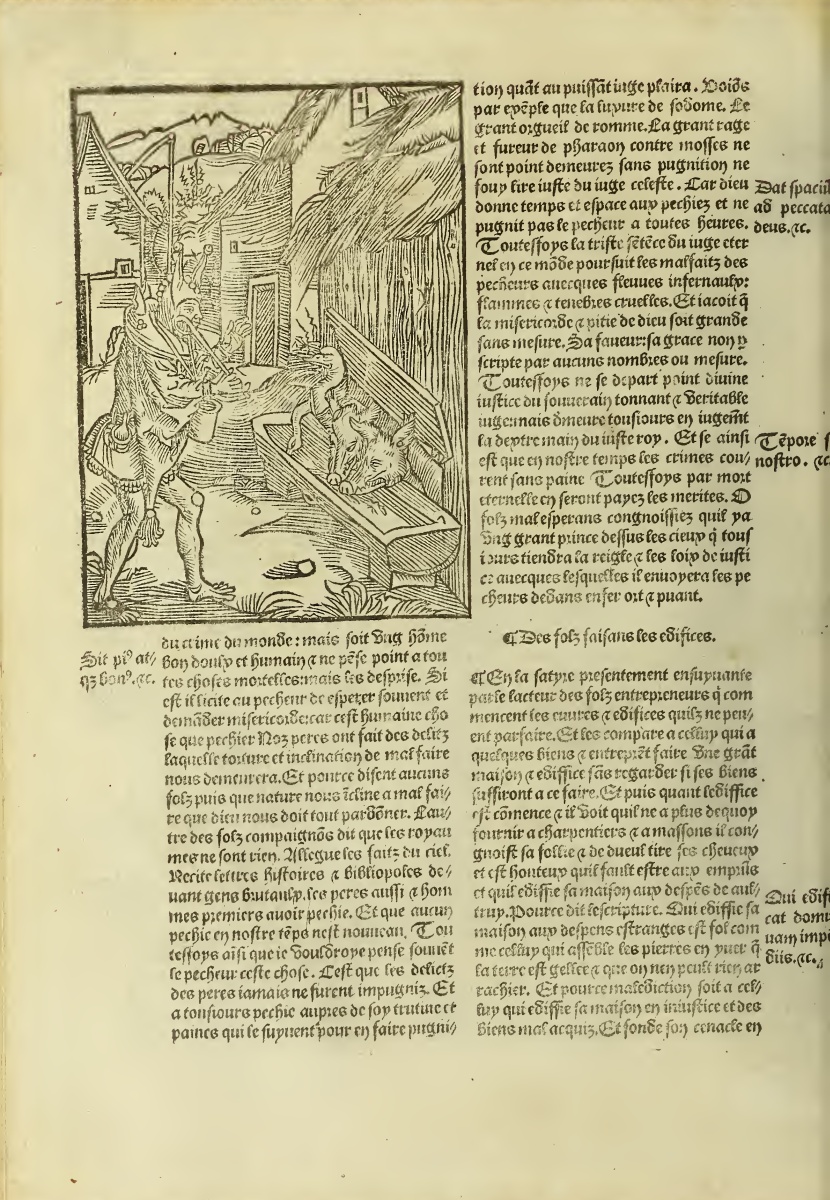 du crime du monde: mais soit vng hõme
bon doulx et humain ⁊ ne pẽse point a tou
tes choses mortelles: mais les desprise. Si
est il licite au pecheur de esperer souuent et
demãder misericorde: car cest humaine cho
se que pechier Noz peres ont fait des delitz
laquelle torture et inclination de mal faire
nous demourera. Et pource disent aucuns
folz puis que nature nous ĩcline a mal fai/
re que dieu nous doit tout pardõner. Lau/
tre des folz compaignõs dit que les royau
mes ne sont rien. Allegue les faitz du ciel.
Recite lettres histoires ⁊ bibliopoles de/
uant gens brutaulx. les peres aussi ⁊ hom
mes premiers auoir pechie. Et que aucun
pechie en nostre tẽps nest nouueau. Tou
teffoys aĩsi que ie vouldroye pense souuẽt
le pecheur ceste chose. Cest que les delictz
des peres iamais ne furent impugniz. Et
a tousiours pechie aupres de soy truture et
paines qui le suyuent pour en faire pugni/
Sit piꝰ at/
qꝫ bonꝰ. ⁊c.
tion quãt au puissãt iuge plaira. Voids
par exẽple que la luxure de sodome. Le
grant orgueil de romme. La grant rage
et fureur de pharaon contre moyses ne
sont point demeurez sans pugnition ne
soubz lire iuste du iuge celeste. Car dieu
donne temps et espace aux pechiez et ne
pugnit pas le pecheur a toutes heures.
Touteffoys la triste sẽtẽce du iuge eter
nel en ce mõde poursuit les malfaitz des
pecheurs auecques fleuues infernaulx:
flammes ⁊ tenebres cruelles. Et iacoit q̃
la misericorde ⁊ pitie de dieu soit grande
sans mesure. Sa faueur: sa grace non p
scripte par aucuns nombres ou mesure.
Touteffoys ne se depart point diuine
iustice du souuerain tonnant ⁊ veritable
iuge: mais demeure tousiours en iugemẽt
la dextre main du iuste roy. Et se ainsi
est que en nostre temps les crimes cou/
rent sans paine Touteffoys par mort
eternelle en seront payez les merites. O
folz mal esperans congnoissiez quil ya
vng grant prince dessus les cieux q̃ tous
iours tiendra la reigle ⁊ les loix de iusti
ce auecques lesquelles il enuoyera les pe
cheurs dedans enfer ort ⁊ puant.
Dat spaciũ
ad peccata
deus. ⁊c.
Tẽpore
nostro. ⁊c
¶ Des folz faisans les edifices.
¶ En la satyre presentement ensuyuante
parle lacteur des folz entrepreneurs q̃ com
mencent les euures ⁊ edifices quilz ne peu/
ent parfaire. Et les compare a celluy qui a
quelques biens ⁊ entreprẽt faire vne grãt
maison ⁊ ediffice sãs regarder si ses biens
suffiront a ce faire. Et puis quant lediffice
est cõmence ⁊ il voit quil ne a plus dequoy
fournir a charpentiers ⁊ a massons il con/
gnoist sa follie ⁊ de dueul tire ses cheueux
et est honteux quil fault estre aux empruns
et quil ediffie sa maison aux despẽs de aul/
truy. Pource dit lescripture. Qui ediffie sa
maison aux despens estranges est fol com
me celluy qui assẽble les pierres en yuer q̃
la terre est gellee ⁊ que on nen peult rien ar
rachier. Et pource malediction soit a cel/
luy qui ediffie sa maison en iniustice et des
biens mal acquiz. Et fonde son cenacle en
Qui edifi
cat domu
uam impē
diis. ⁊c.